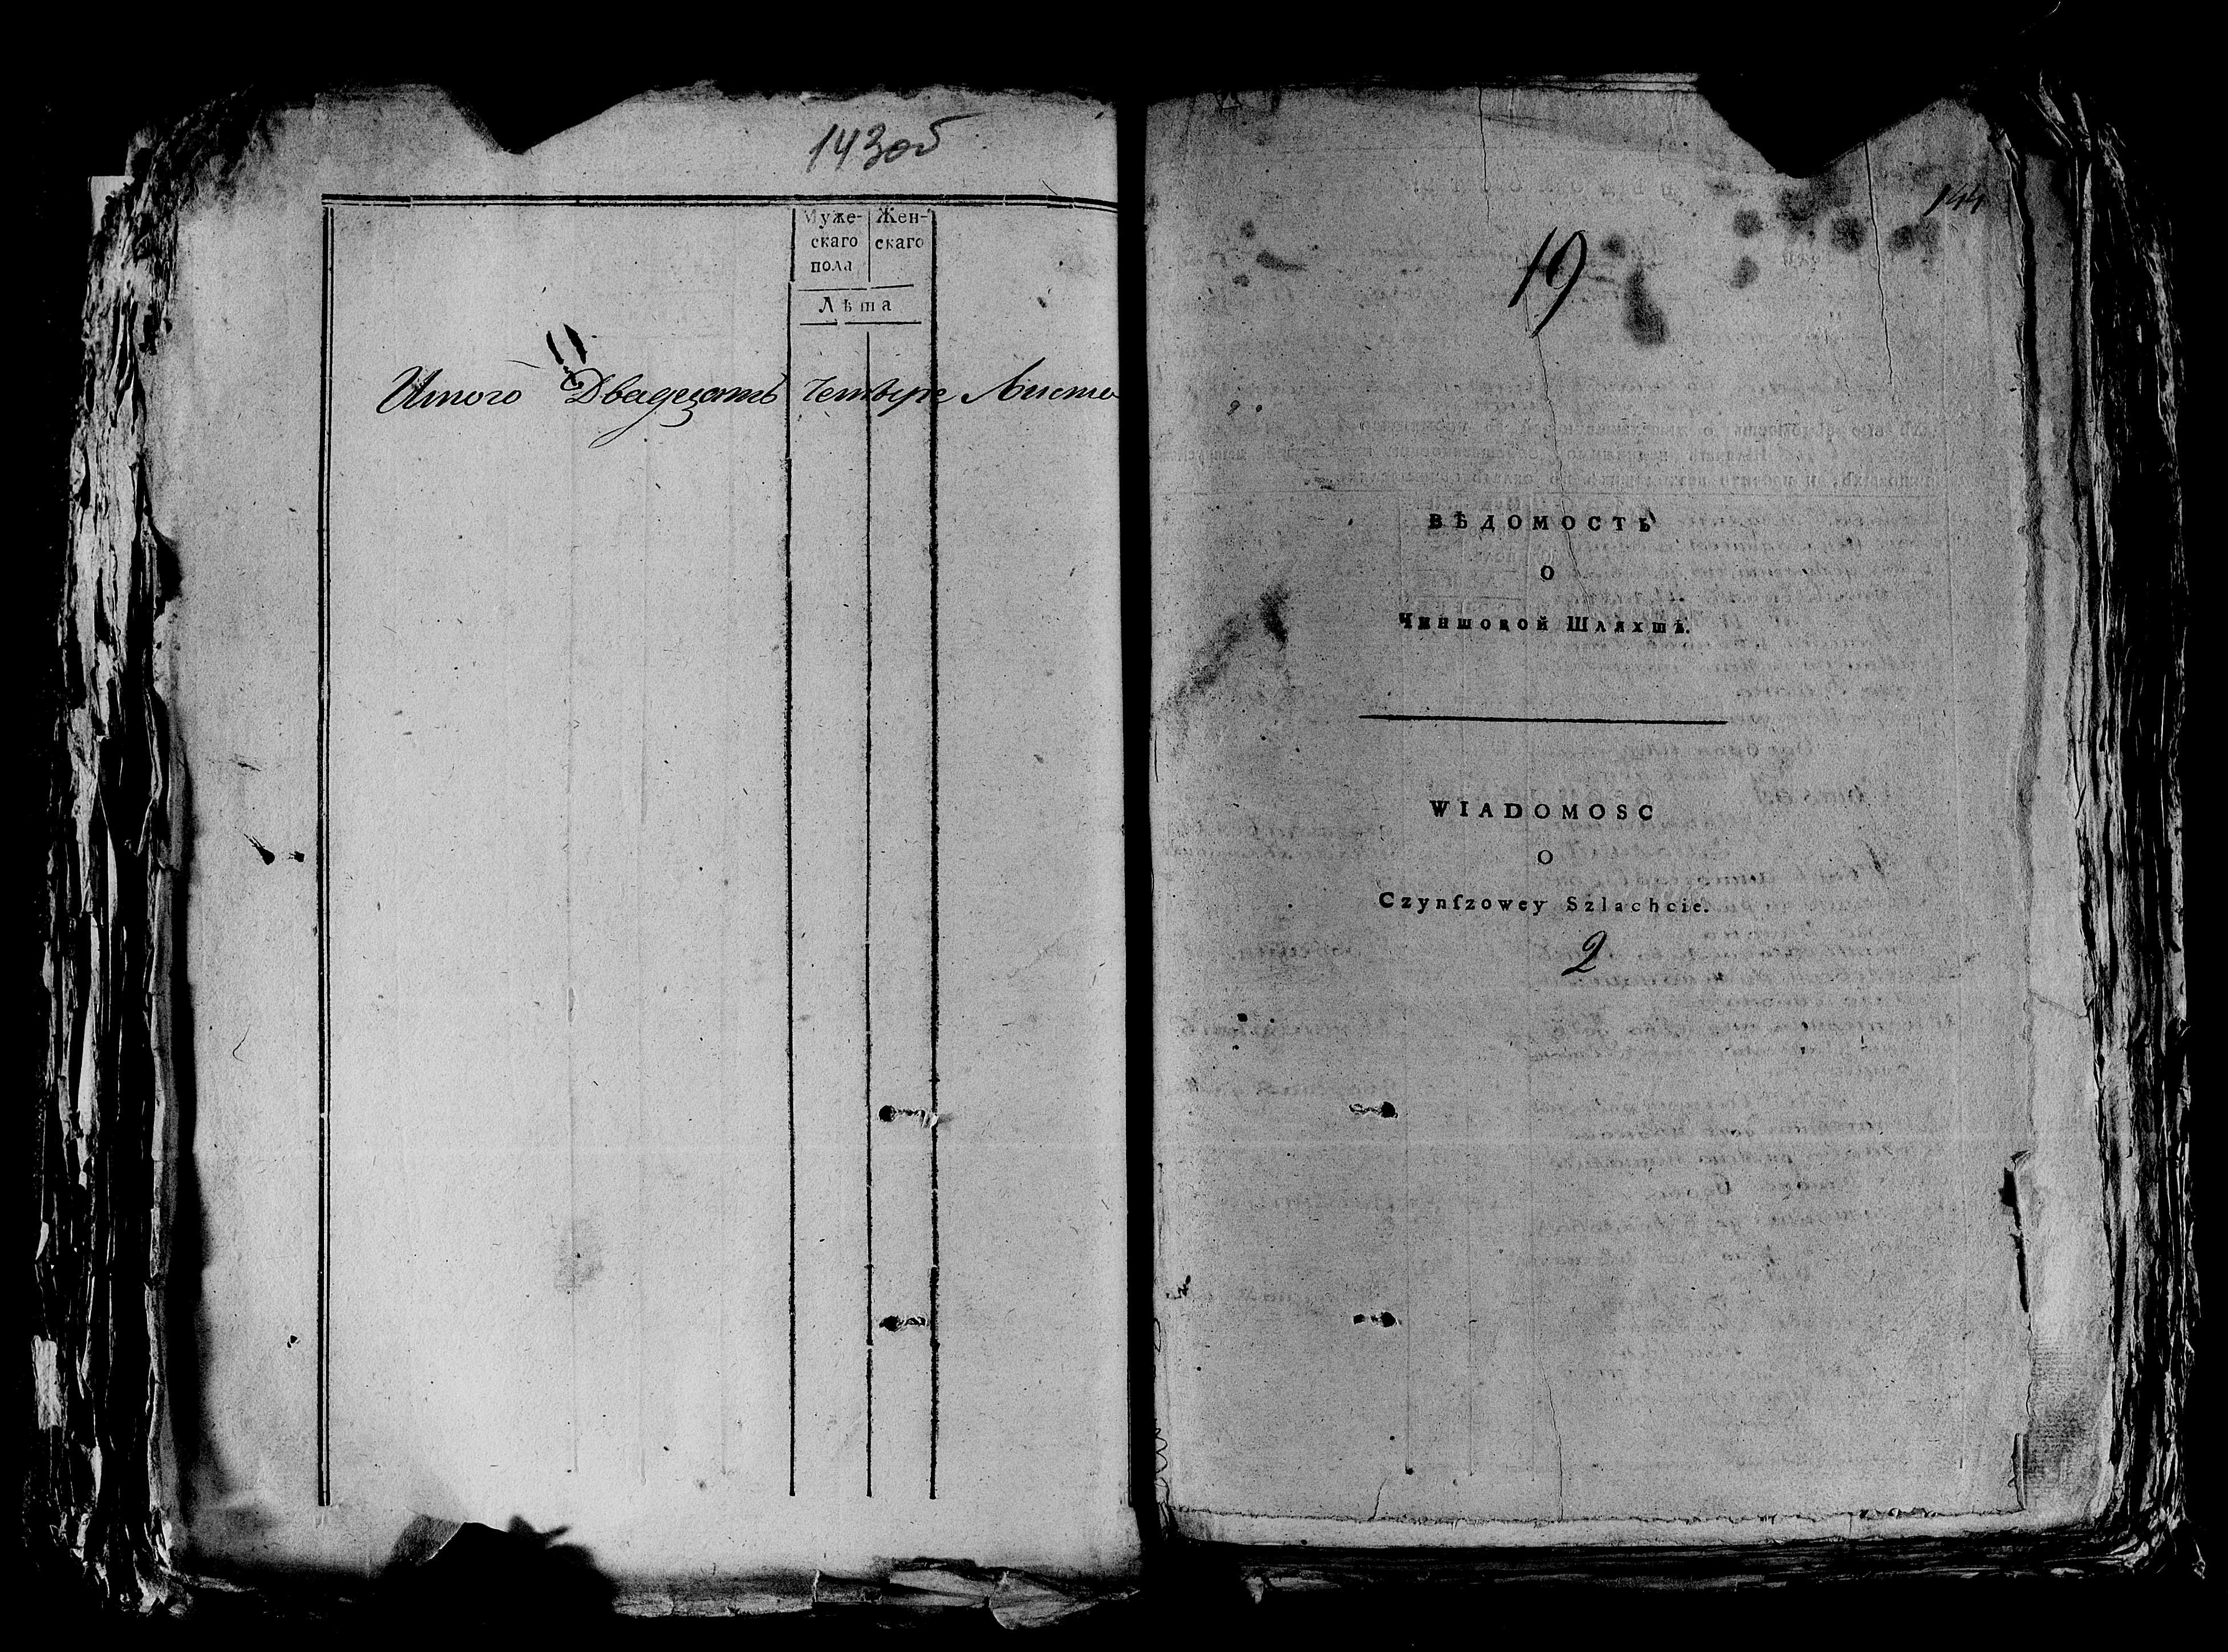 143об
Муже- Жен-
скаго скаго
пола
Лѣта
Итого Двадецать Четыре Листа
144
19
ВѢДОМОСТЬ
О
Чиншовой Шляхтѣ.
WIADOMOSC
O
Czynſzowey Szlachcie.
2